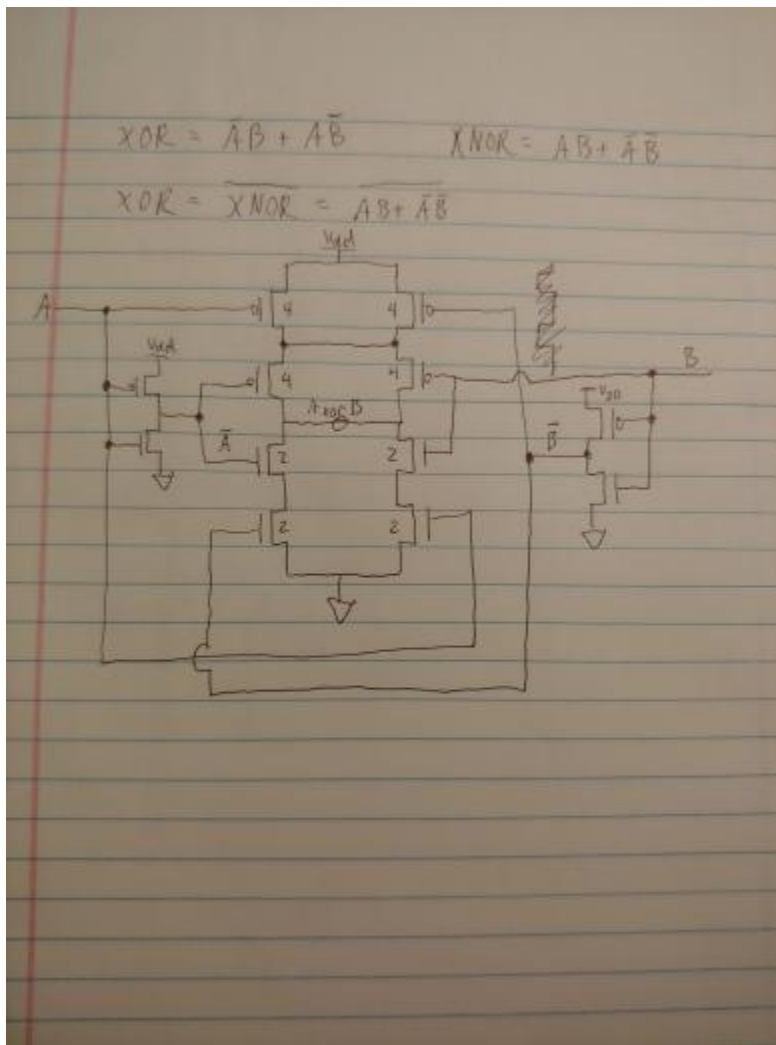 XOR = A̅B + AB̅ XNOR = AB + A̅B̅
XOR = X̅N̅O̅R̅ = A̅B̅ ̅+̅ ̅A̅B̅
Vdd
A 4 4
Vdd 4 4 B
A XOR B VDD
A̅ 2 2 B̅
2 2